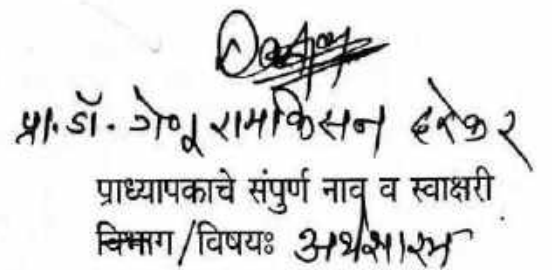 प्रा. डॉ. गेणू रामकिसन दरेकर
प्राध्यापकाचे संपुर्ण नाव व स्वाक्षरी
विभाग/विषयः अर्थशास्त्र